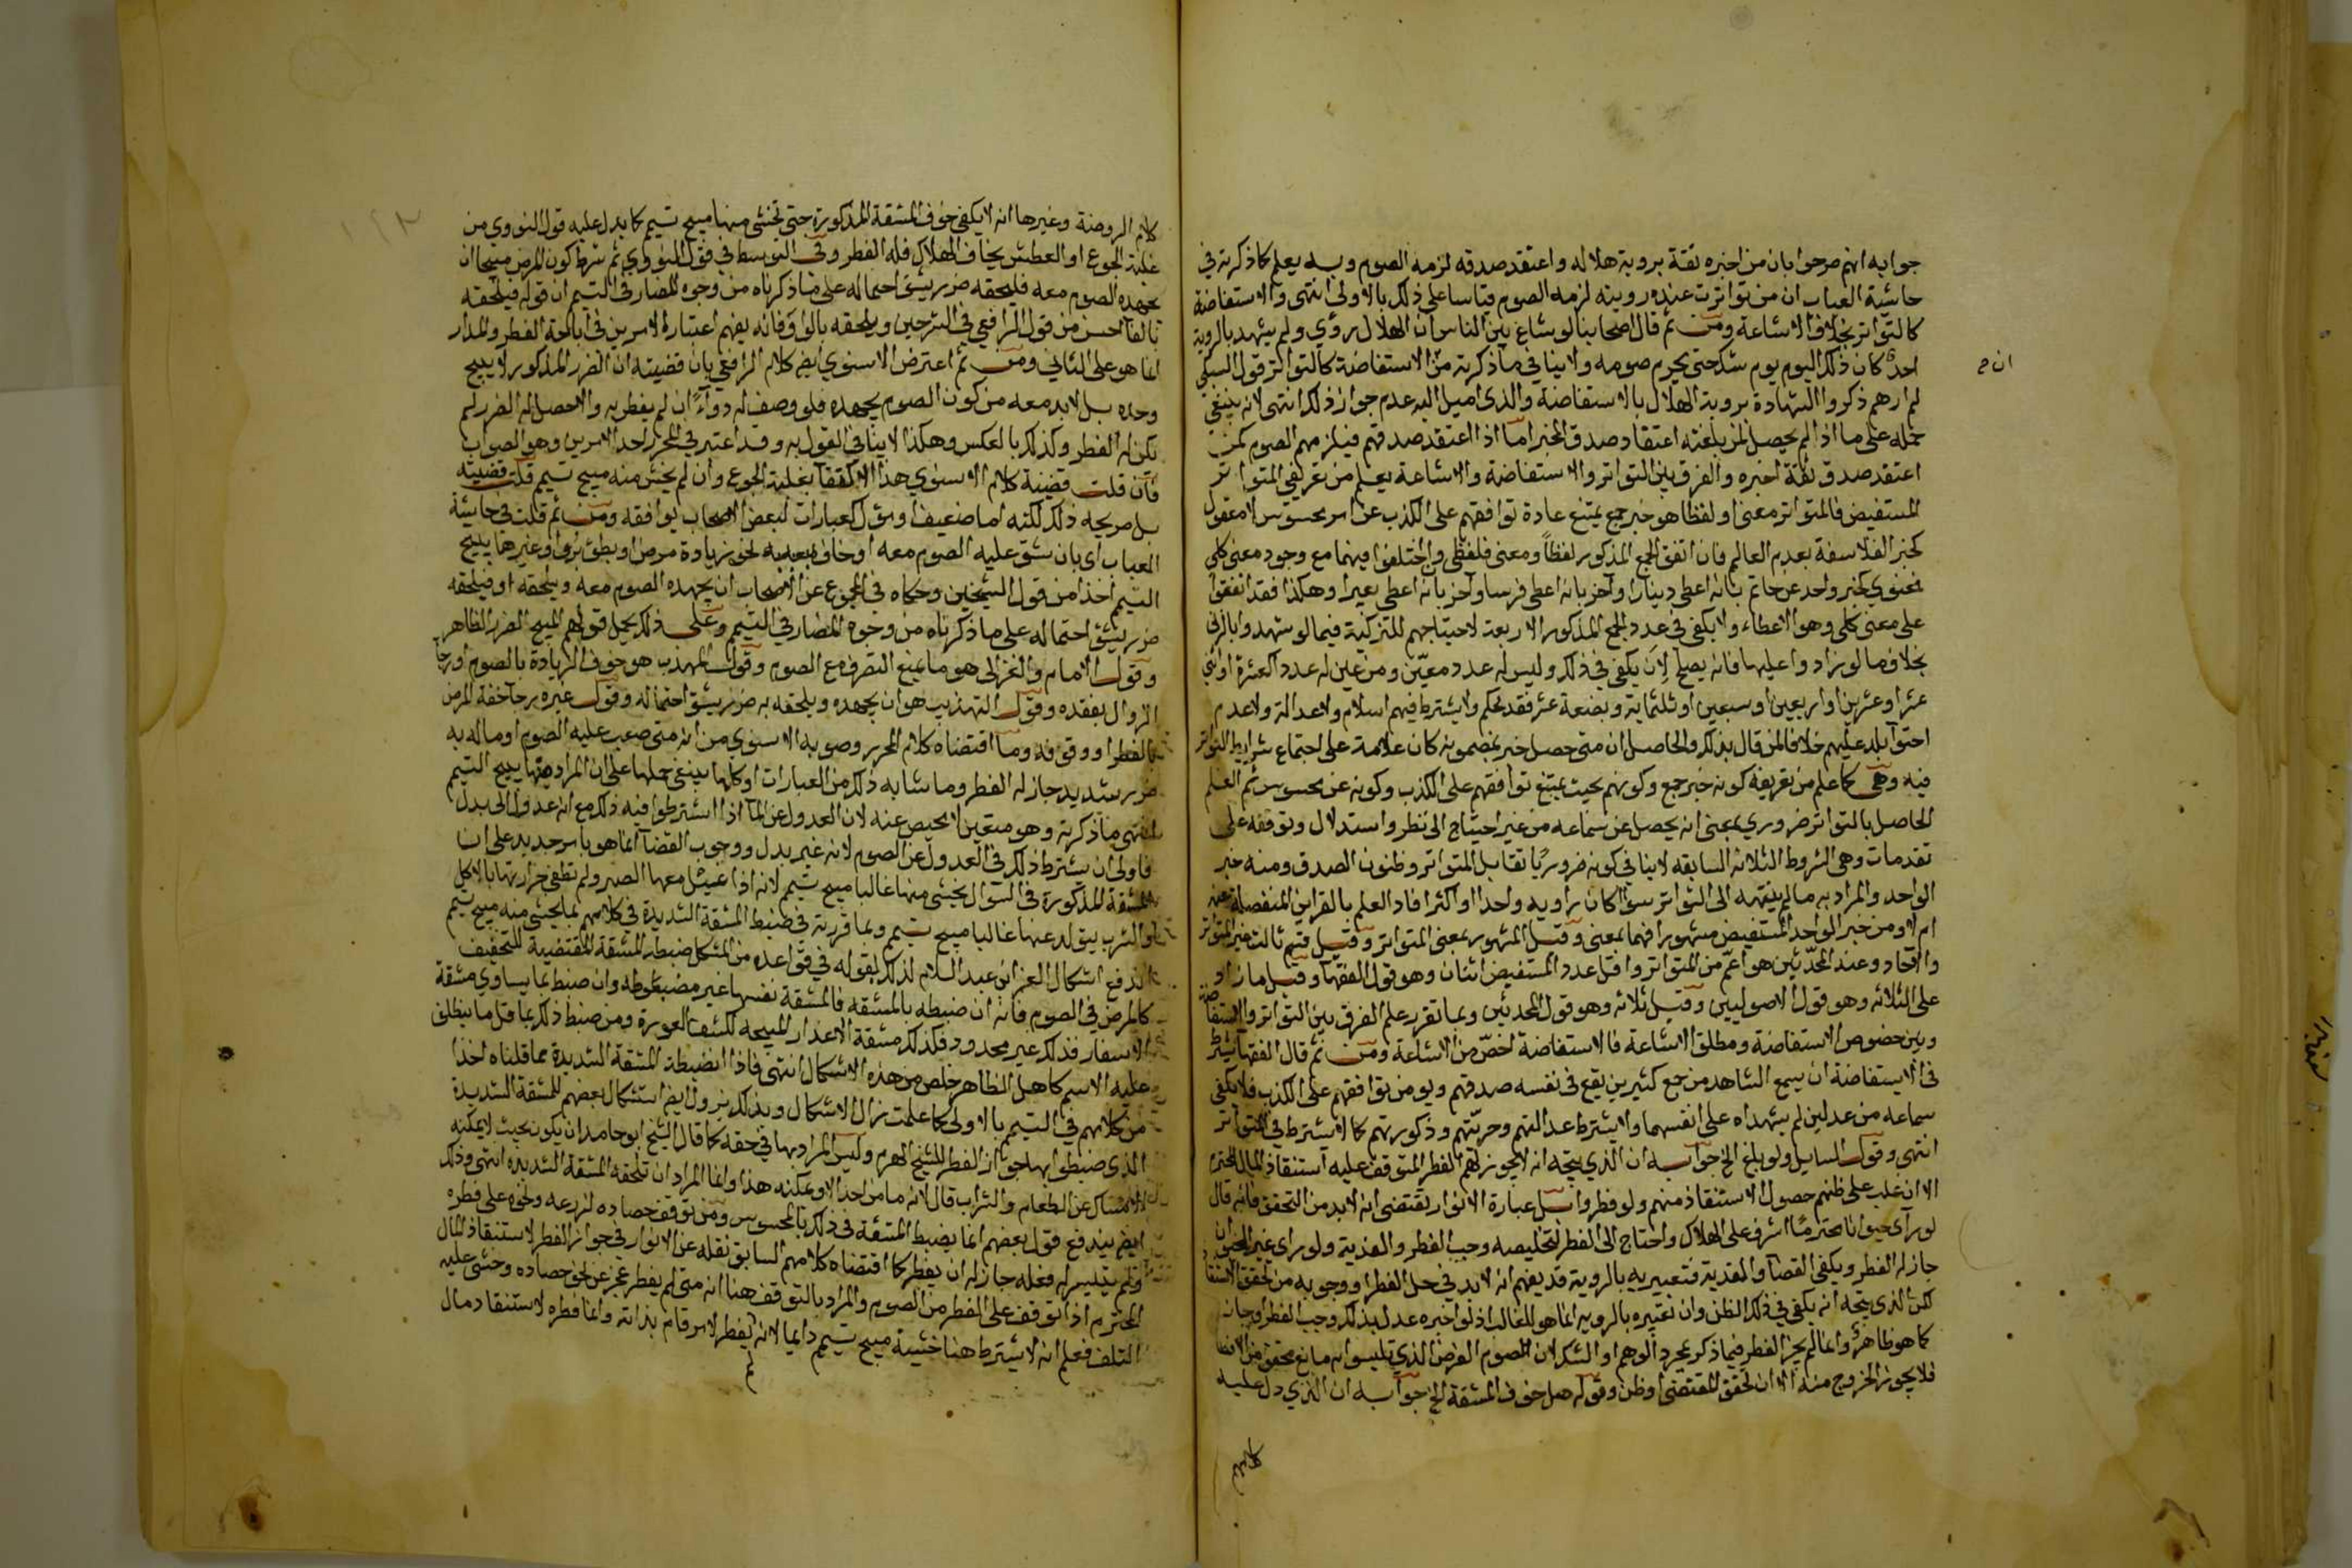 جوابه انهم صرحوا بان من اخبره ثقة بروية هلاله واعتقد صدقه لزمه الصوم وبه يعلم كما ذكرته في
حاشية العباب ان من تواترت عنده رويته لزمه الصوم قياسا على ذلك بالاولى انتهى والاستفاضة
كالتواتر بخلاف الاشاعة ومن ثم قال اصحابنا لو شاع بين الناس ان الهلال رؤي ولم يشهد بالروية
احد كان ذلك اليوم يوم شك حتى يحرم صومه ولا ينافي ما ذكرته من الاستفاضة كالتواتر قول السبكي
ان ح
لم ارهم ذكروا الشهادة بروية الهلال بالاستفاضة والذي اميل اليه عدم جواز ذلك انتهى لانه ينبغي
حمله على ما اذا لم يحصل لمن بلغته اعتقاد صدق المخبر اما اذا اعتقد صدقهم فيلزمهم الصوم كمن
اعتقد صدق ثقة اخبره والفرق بين التواتر والاستفاضة والاشاعة يعلم من تعريفي المتواتر
المستفيض فالمتواتر معنى او لفظا هو خبر جمع يمتنع عادة توافقهم على الكذب عن امر محسوس لا معقول
كخبر الفلاسفة بعدم العالم فان اتفق الجمع المذكور لفظاً ومعنى فلفظي وان اختلفوا فيهما مع وجود معنى كلي
فمعنوي كخبر واحد عن حاتم بانه اعطى دينارا واخر بانه اعطى فرسا واخر بانه اعطى بعيرا وهكذا فقد اتفقوا
على معنى كلي وهو الاعطاء ولا يكفي في عدد الجمع المذكور الاربعة لاحتياجهم للتزكية فيما لو شهدوا بالزنى
بخلاف ما لو زادوا عليها فانه يصلح لان يكفي في ذلك وليس له عدد معيّن ومن عين له عدد كعشرة او اثني
عشر او عشرين او اربعين او سبعين او ثلثماية وبضعة عشر فقد تحكم ولا يشترط فيهم اسلام ولا عدالة ولا عدم
احتوا بلد عليهم خلافا لمن قال بذلك والحاصل ان متى حصل خبر بمضمونه كان علامة على اجتماع شرايط التواتر
فيه وهي كما علم من تعريفه كونه خبر جمع وكونهم بحيث يمتنع توافقهم على الكذب وكونه عن محسوس ثم العلم
الحاصل بالتواتر ضروري بمعنى انه يحصل عن سماعه من غير احتياج الى نظر واستدلال وتوقفه على
تقدمات وهي الشروط الثلاثه السابقه لا ينافي كونه ضروريًا تقابل المتواتر وظنون الصدق ومنه خبر
الواحد والمراد به ما لم ينتهه الى التواتر سوآ كان راويه واحدا او اكثر افاد العلم بالقراين المنفصلة عنه
ام لا ومن خبر الواحد المستفيض مشهورا فهما بمعنى وقيل المشهور بمعنى المتواتر وقيل قسم ثالث غير المتواتر
والآحاد وعند المحدّثين هو اعمّ من المتواتر واقل عدد المستفيض اثنان وهو قول الفقهآ وقيل ما زاد
على الثلاثه وهو قول الاصوليين وقيل ثلاثه وهو قول المحدثين وبما تقرر علم الفرق بين التواتر والاستفاضة
وبين خصوص الاستفاضة ومطلق الاشاعة فالاستفاضة اخصّ من الاشاعة ومن ثم قال الفقهآ يشترط
في الاستفاضة ان يسمع الشاهد من جمع كثيرين يقع في نفسه صدقهم ويومن توافقهم على الكذب فلا يكفي
سماعه من عدلين لم يشهداه على انفسهما ولا يشترط عدالتهم وحريّتهم وذكورتهم كما لا يشترط في التواتر
انتهى وقول السايل ولو بلغ الخ جوابه ان الذي يتجه انه لا يجوز لهم الفطر المتوقف عليه استنقاذ المال المحترم
الا ان غلب على ظنهم حصول الاستنقاذ منهم ولو فطروا بل عبارة الانوار تقتضي انه لابد من التحقق فانه قال
لو رآى حيوانا محترمًا اشرف على الهلاك واحتاج الى الفطر لتخليصه وجب الفطر والفدية ولو راى غير الحيوان
جاز له الفطر ويكفي القضآ والفدية فتعبيره بالروية قد يفهم انه لابد في حل الفطر او وجوبه من تحقق الاستنقاذ
لكن الذي يتجه انه يكفي في ذلك الظن وان تعبيره بالرويه انما هو للغالب اذ لو اخبره عدل بذلك وجب الفطر او جاز
كما هو ظاهر وانما لم يجز الفطر فيما ذكر بمجرد الوهم او الشك لان الصوم الفرض الذي تلبسوا به مانع محقق من الافطار
فلا يجوز الخروج منه الا ان تحقق المقتضى او ظن وقوله هل خوف المشقة الخ جوابه ان الذي دل عليه
كلام
كلام الروضة وغيرها انه لا يكفي خوف المشقة المذكورة حتى تخشى منها مبيح تيمم كما يدل عليه قول النووي من
غلبه الجوع او العطش يخاف الهلاك فله الفطر وفي التوسط في قول النواوي ثم شرط كون المرض مبيحا ان
يجهده الصوم معه فيلحقه ضرر يشق احتماله على ما ذكرناه من وجوه المضار في التيمم ان قوله فيلحقه
بالفآ احسن من قول الرافعي في الشرحين ويلحقه بالواو فانه يفهم اعتبار الامرين في اباحة الفطر والمدار
انما هو على الثاني ومن ثم اعترض الاسنوي ايضا كلام الرافعي بان قضيته ان الضرر المذكور لا يبيح
وحده بل لابد معه من كون الصوم يجهده فلو وصف له دوآءً ان لم يفطر به والا حصل له الضرر لم
يكن له الفطر وكذلك بالعكس وهكذا لا ينافي القول به وقد اعتبر في المحرر احد الامرين وهو الصواب
فان قلت قضية كلام الاسنوي هذا الاكتفآ بغلبة الجوع وان لم يخش منه مبيح تيمم قلت قضيته
بل صريحه ذلك لكنه اما ضعيف او مؤل كعبارات لبعض الاصحاب يوافقه ومن ثم قلت في حاشية
العباب اي بان شق عليه الصوم معه او خاف بعده لخوف زيادة مرض او بطؤ برؤ او غيرها يبيح
التيمم اخذا من قول الشيخين وحكاه في المجموع عن الاصحاب ان يجهده الصوم معه ويلحقه او فيلحقه
ضرر يشق احتماله على ما ذكرناه من وجوه المضار في التيمم وعلى ذلك يحمل قولهم المبيح الضرر الظاهر
وقول الامام والغزالي هو ما يمنع التصرف مع الصوم وقول المهذب هو خوف الزيادة بالصوم او رجآ
الزوال بفقده وقول التهذيب هو ان يجهده ويلحقه به ضرر يشق احتماله وقول غيره رجآ خفة المرض
بالفطر او وقوفه وما اقتضاه كلام المحرر وصوبه الاسنوي من انه متى صعب عليه الصوم او ماله به
ضرر شديد جاز له الفطر وما شابه ذلك من العبارات او كلها ينبغي حملها على ان المراد منها يبيح التيمم
انتهى ما ذكرته وهو متعين لا محيص عنه لان العدول عن المآ اذا اشترطوا فيه ذلك مع انه عدول الى بدل
فاولى ان يشترط ذلك في العدول عن الصوم لانه غير بدل ووجوب القضآ انما هو بامر جديد على ان
المشقة المذكورة في السوال يخشى منها غالبا مبيح تيمم لانه اذا عيل معها الصبر ولم تطفى حرارتها بالاكل
والشرب يتولد عنها غالبا مبيح تيمم وبما قررته في ضبط المشقة الشديدة في كلامهم بما يخشى منه مبيح تيمم
اندفع اشكال العز ابن عبد السلام لذلك بقوله في قواعده من المشكل ضبط المشقة المقتضية للتخفيف
كالمرض في الصوم فانه ان ضبطه بالمشقه فالمشقة نفسها غير مضبوطه وان ضبط بما يساوي مشقة
الاسفار فذلك غير محدود وكذلك مشقة الاعذار المبيحه لكشف العورة ومن ضبط ذلك باقل ما ينطلق
عليه الاسم كاهل الظاهر خلص من هذه الاشكال انتهى فاذا انضبطة المشقة الشديدة مما قلناه اخذا
من كلامهم في التيمم بالاولى كما علمت زال الاشكال وبذلك يزول ايضا استشكال بعضهم للمشقة الشديدة
الذي ضبطوا بها جواز الفطر للشيخ الهرم وليس المراد بها في حقه كما قال الشيخ ابو حامد ان يكون بحيث لا يمكنه
الامساك عن الطعام والشراب قال لانه ما من احد الا ويمكنه هذا وانما المراد ان تلحقه المشقة الشديده انتهى وذلك
ايضا يندفع قول بعضهم انما يضبط المشقة في ذلك بالمحسوس ومن توقف حصاده لزرعه ونحوه على فطره
ولم يتيسر له فعله جاز له ان يفطر كما اقتضاه كلامهم السابق نقله عن الانوار في جواز الفطر لاستنقاذ المال
المحترم اذا توقف على الفطر من الصوم والمراد بالتوقف هنا انه متى لم يفطر عجز عن نحو حصاده وخشى عليه
التلف فعلم انه لا يشترط هنا خشية مبيح تيمم دايما لانه يفطر لامر قام بذاته وانما فطره لاستنقاذ مال